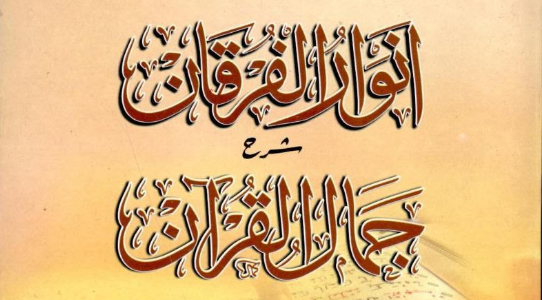 اَنوَارُالفُرقَان
شرح
جَمَالُ القُرآن